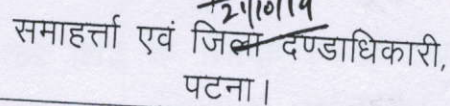 21/10/14
समाहर्त्ता एवं जिला दण्डाधिकारी,
पटना।